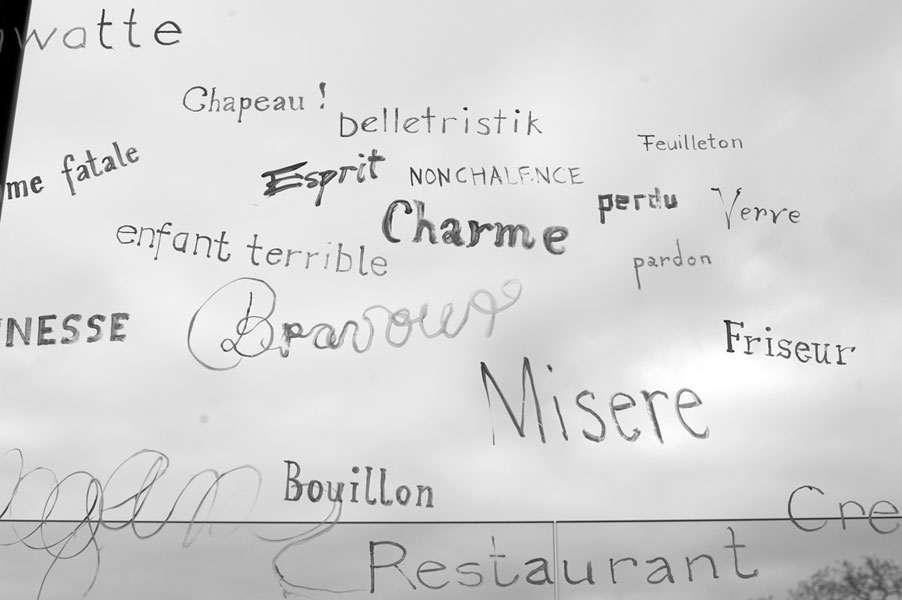 watte
Chapeau !
Belletristik
Feuilleton
me fatale
Esprit
NONCHALENCE
perdu
Verve
Charme
enfant terrible
pardon
Bravour
NESSE
Friseur
Misere
Bouillon
Cre
Restaurant